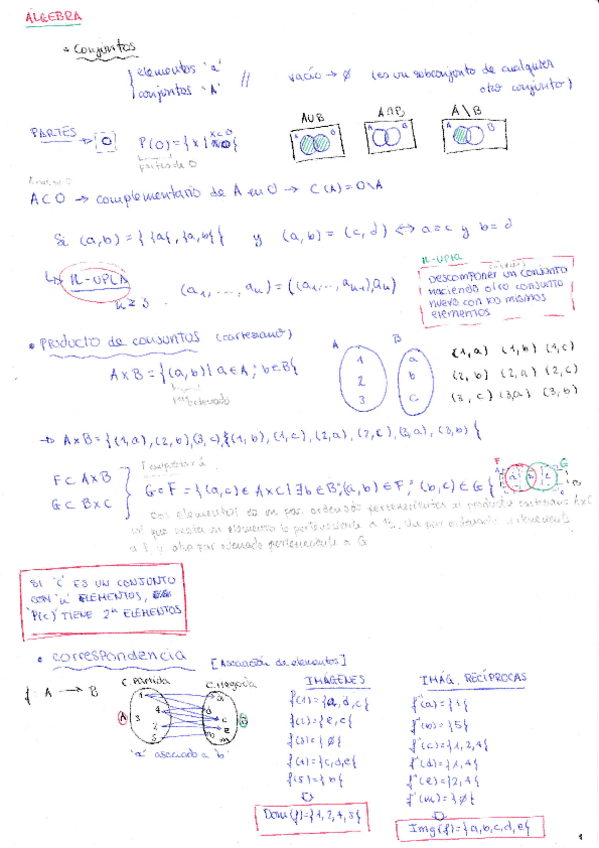 ÁLGEBRA
• Conjuntos
{ elementos 'a'
conjuntos 'A' // vacío → ∅ (es un subconjunto de cualquier otro conjunto)
A∪B A∩B A\B
A B A B A B
PARTES → O P(O) = {x | x⊂O}
partes de O
A⊂O → complementario de A en O → C(A) = O\A
Si (a,b) = {{a}, {a,b}} y (a,b) = (c,d) ⟷ a=c y b=d
↳ n-UPLA
n ≥ 3. (a₁, ..., aₙ) = ((a₁, ..., aₙ₋₁), aₙ)
n-UPLA
Descomponer un conjunto
haciendo otro conjunto
nuevo con los mismos
elementos
• PRODUCTO de CONJUNTOS (cartesiano)
A×B = {(a,b) | a∈A; b∈B}
par
ordenado
A B
1 a (1,a) (1,b) (1,c)
2 b (2,b) (2,a) (2,c)
3 c (3,c) (3,a) (3,b)
→ A×B = {(1,a), (2,b), (3,c), (1,b), (1,c), (2,a), (2,c), (3,a), (3,b)}
F⊂A×B
G⊂B×C
G∘F = {(a,c)∈A×C | ∃b∈B; (a,b)∈F; (b,c)∈G}
F G
Los elementos es un par ordenado pertenecientes al producto cartesiano A×C
tal que exista un elemento b perteneciente a B. Un par ordenado perteneciente
a F y otro par ordenado perteneciente a G
SI 'C' ES UN CONJUNTO
CON 'n' ELEMENTOS,
'P(C)' TIENE 2ⁿ ELEMENTOS
• Correspondencia [Asociación de elementos]
f: A → B
C. Partida C. llegada
A 1 4 3 2 5
a d c e b m B
'a' asociado a 'b'
IMÁGENES
f(1) = {a,d,c}
f(2) = {e,c}
f(3) = {∅}
f(4) = {c,d,e}
f(5) = {b}
Dom(f) = {1,2,4,5}
IMÁG. RECÍPROCAS
f⁻¹(a) = {1}
f⁻¹(b) = {5}
f⁻¹(c) = {1,2,4}
f⁻¹(d) = {1,4}
f⁻¹(e) = {2,4}
f⁻¹(m) = {∅}
Img(f) = {a,b,c,d,e}
1